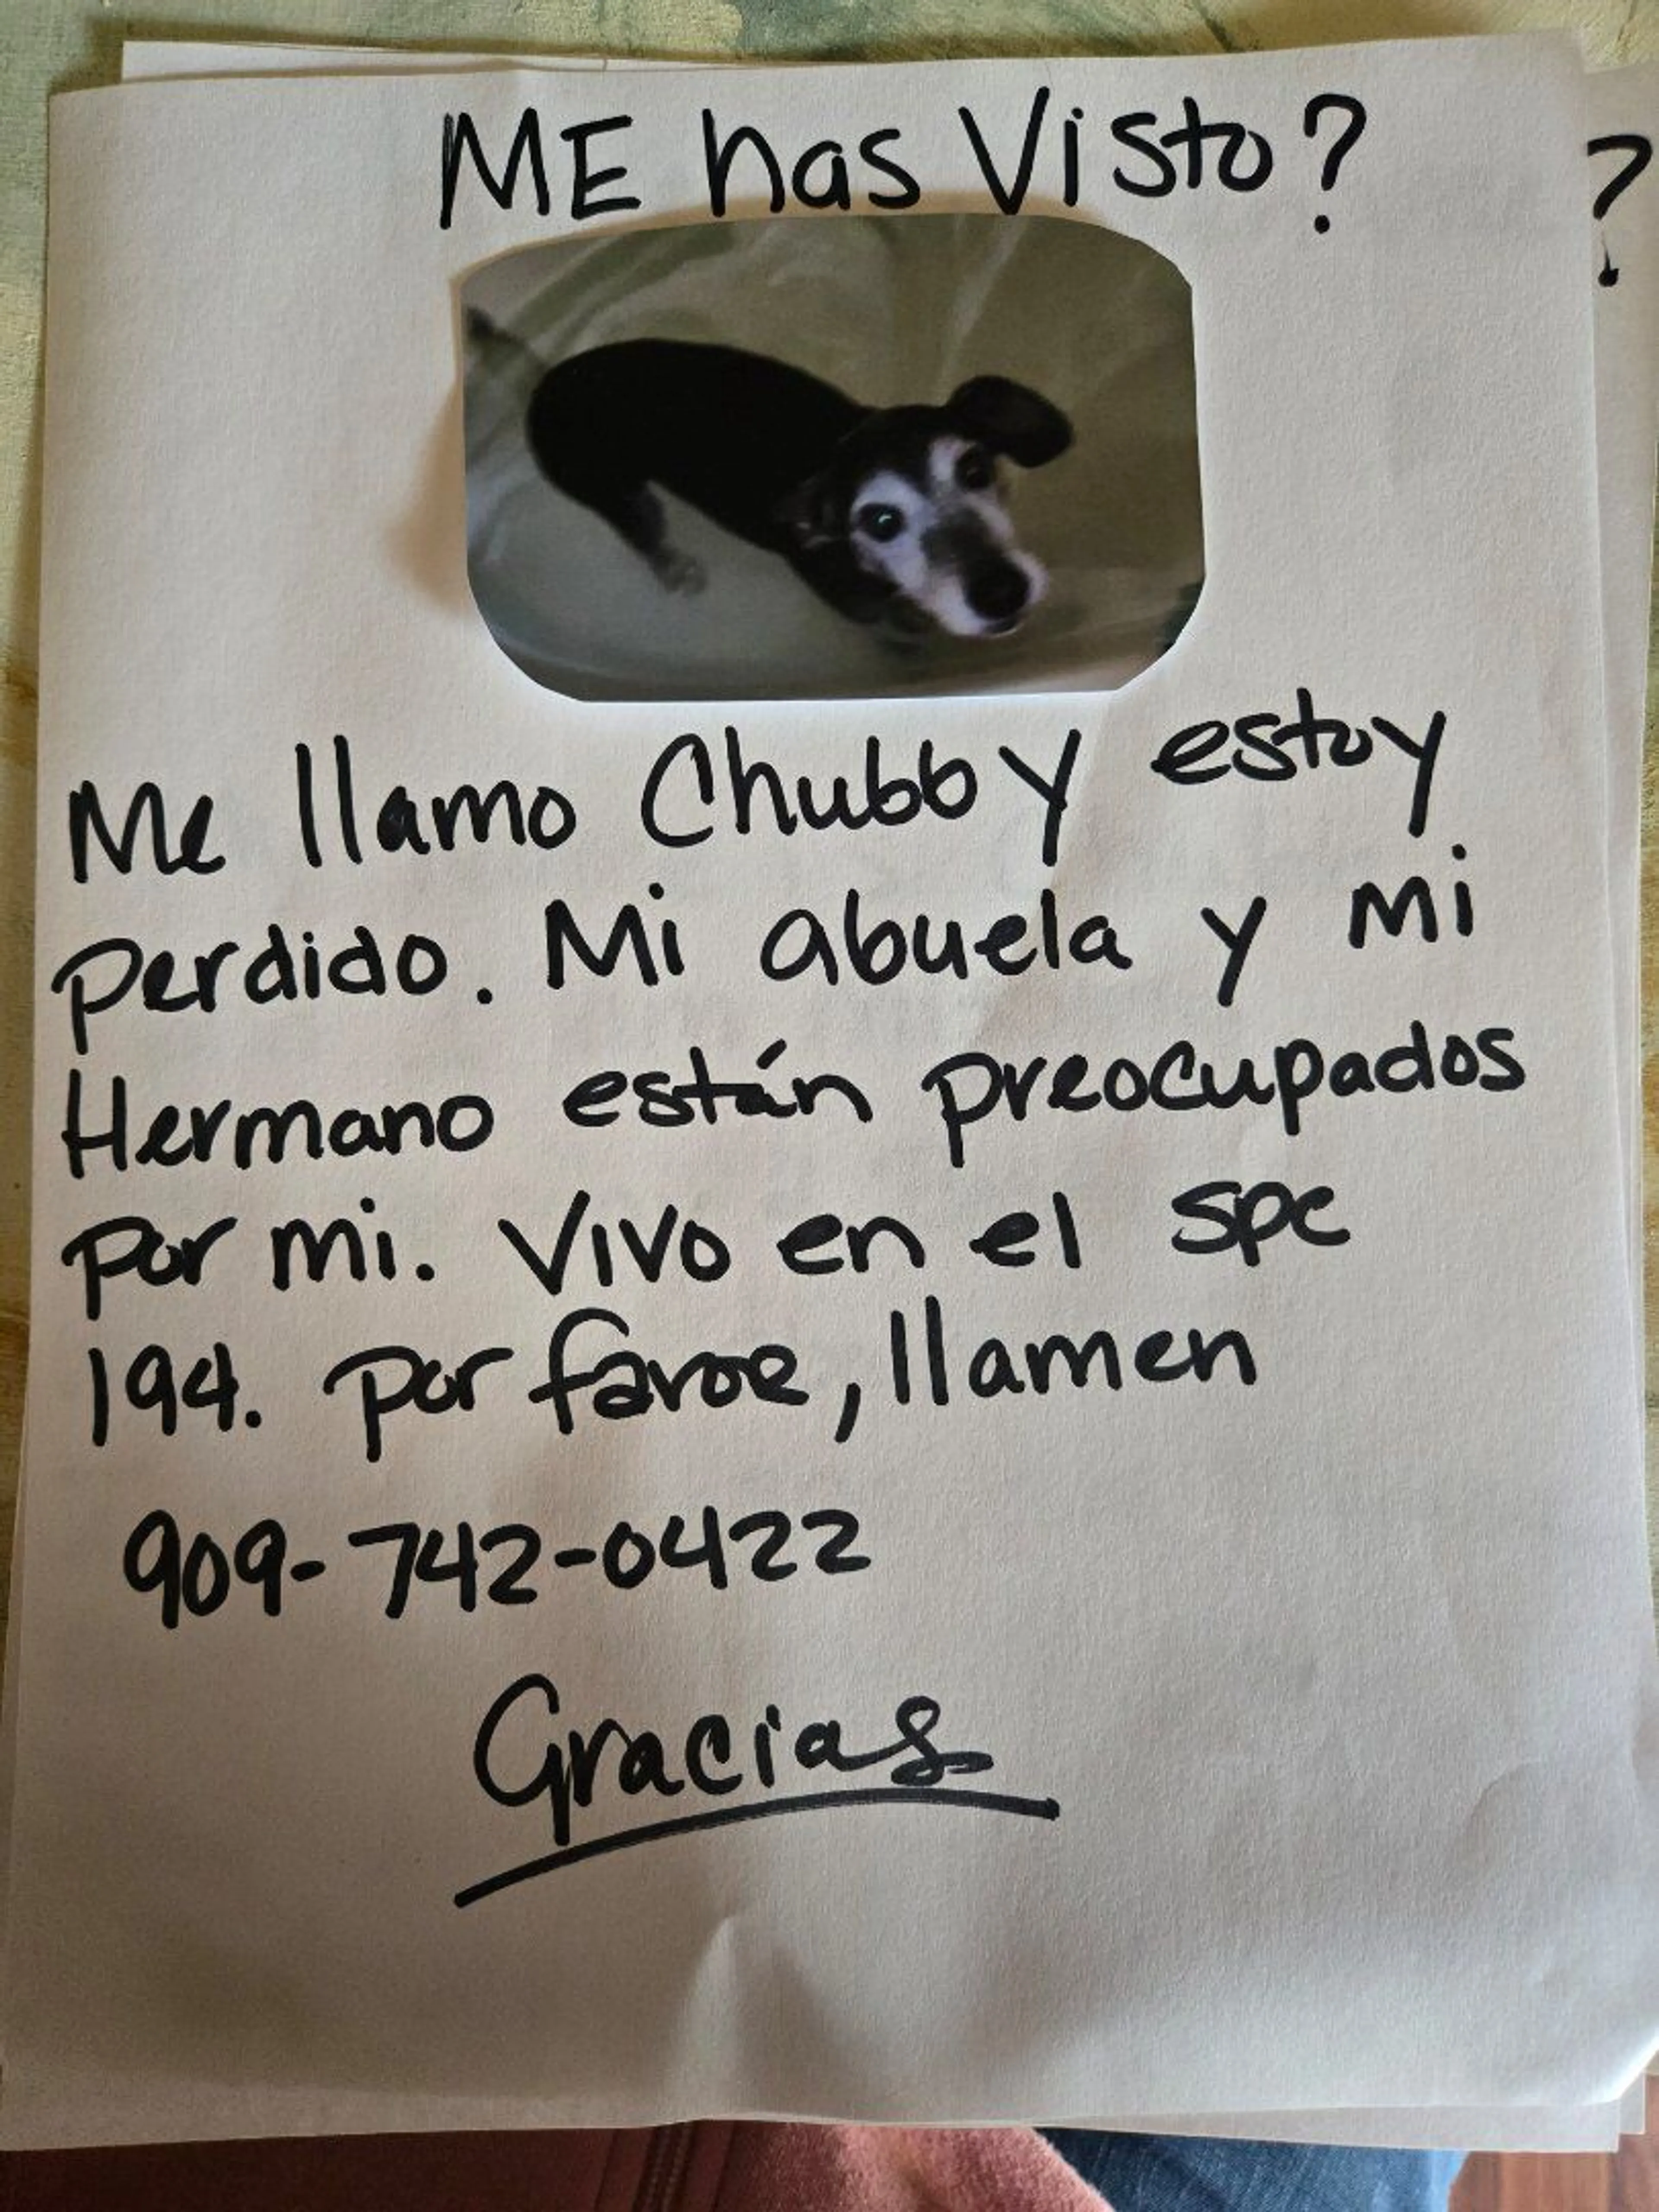 ME has Visto?
?
Me llamo Chubby estoy
perdido. Mi abuela y mi
Hermano están preocupados
por mi. Vivo en el spc
194. por favor, llamen
909-742-0422
Gracias